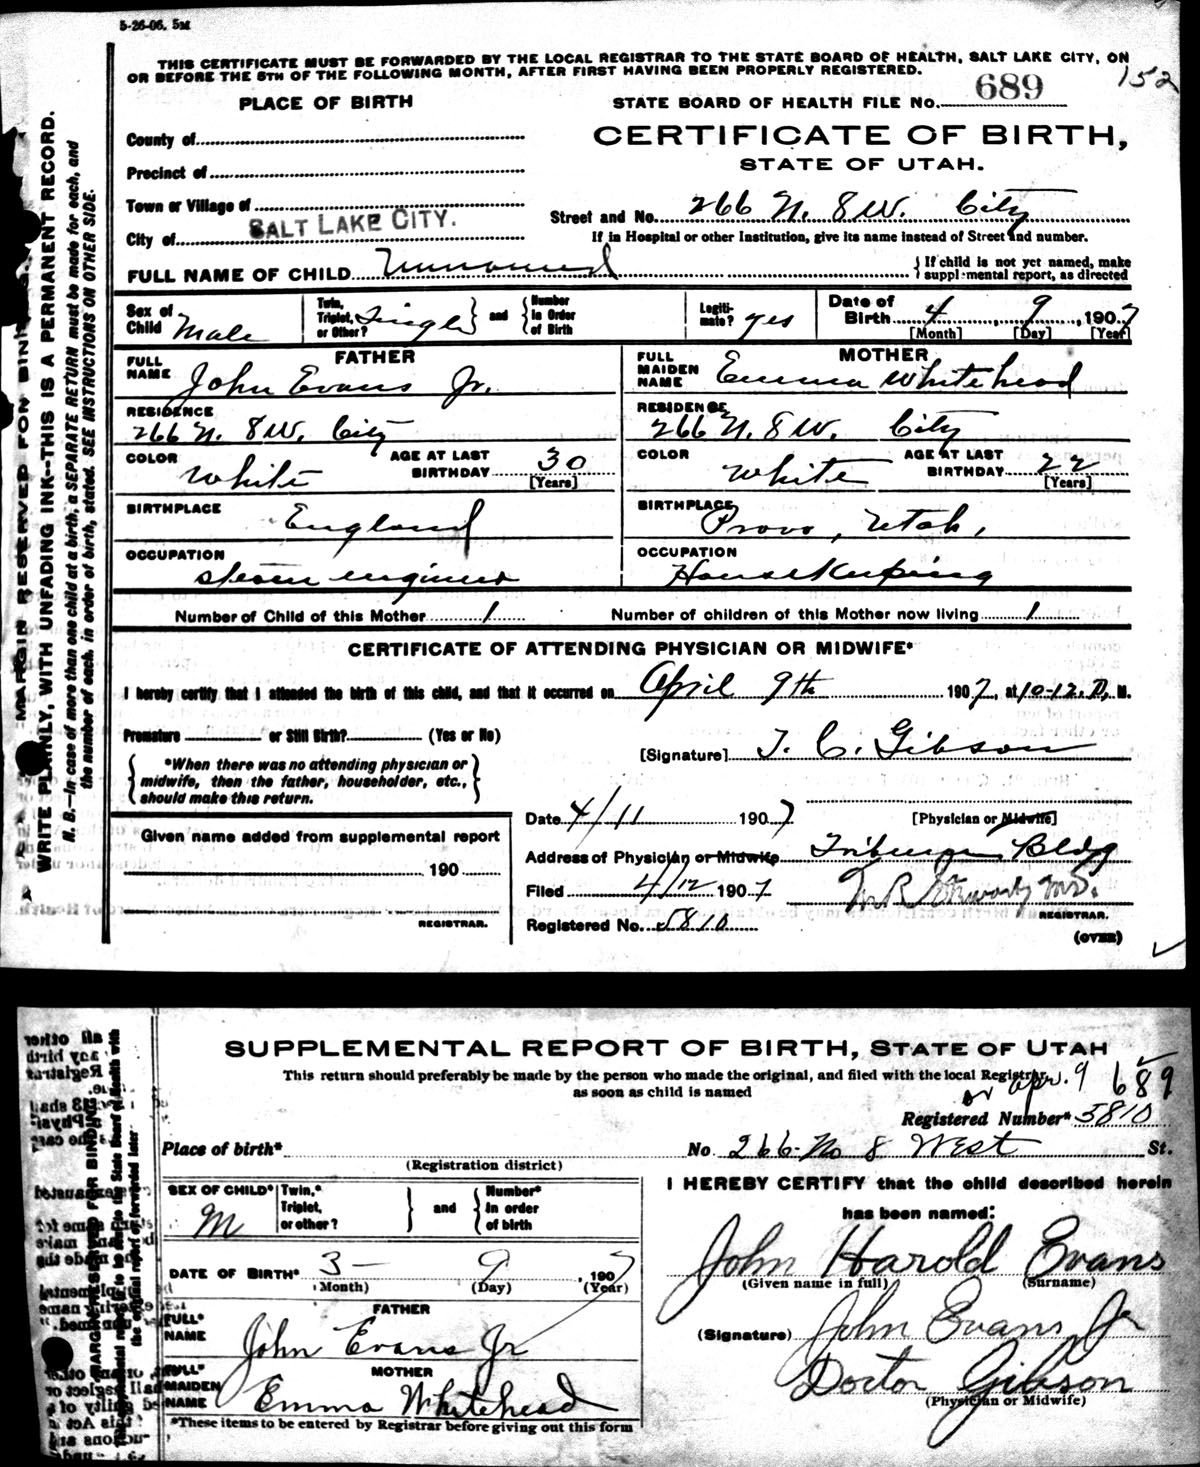 5-26-06. 5M
THIS CERTIFICATE MUST BE FORWARDED BY THE LOCAL REGISTRAR TO THE STATE BOARD OF HEALTH, SALT LAKE CITY, ON
OR BEFORE THE 5TH OF THE FOLLOWING MONTH, AFTER FIRST HAVING BEEN PROPERLY REGISTERED.
152
PLACE OF BIRTH
STATE BOARD OF HEALTH FILE No. 689
CERTIFICATE OF BIRTH,
STATE OF UTAH.
County of
Precinct of
Town or Village of
City of SALT LAKE CITY.
Street and No. 266 N. 8 W. City
If in Hospital or other Institution, give its name instead of Street and number.
FULL NAME OF CHILD Unnamed
If child is not yet named, make
supplemental report, as directed
Sex of Child Male
Twin, Triplet, or Other? Single
and Number in Order of Birth
Legiti-mate? yes
Date of Birth 4, 9, 1907
[Month] [Day] [Year]
FATHER
FULL NAME John Evans Jr.
RESIDENCE
266 N. 8 W. City
COLOR White
AGE AT LAST BIRTHDAY 30
[Years]
BIRTHPLACE England
OCCUPATION
steam engineer
MOTHER
FULL MAIDEN NAME Emma Whitehead
RESIDENCE
266 N. 8 W. City
COLOR White
AGE AT LAST BIRTHDAY 22
[Years]
BIRTHPLACE Provo, Utah,
OCCUPATION
Housekeeping
Number of Child of this Mother 1
Number of children of this Mother now living 1
CERTIFICATE OF ATTENDING PHYSICIAN OR MIDWIFE*
I hereby certify that I attended the birth of this child, and that it occurred on April 9th 1907, at 10-12. P. M.
Premature or Still Birth? (Yes or No)
[Signature] T. C. Gibson
*When there was no attending physician or
midwife, then the father, householder, etc.,
should make this return.
Date 4/11 1907
[Physician or Midwife]
Given name added from supplemental report
190
REGISTRAR.
Address of Physician or Midwife Bldg
Filed 4/12 1907
M.D.
REGISTRAR.
Registered No. 5810
(OVER)
MARGIN RESERVED FOR BINDING
WRITE PLAINLY, WITH UNFADING INK--THIS IS A PERMANENT RECORD.
N. B.—In case of more than one child at a birth, a SEPARATE RETURN must be made for each, and
the number of each, in order of birth, stated. SEE INSTRUCTIONS ON OTHER SIDE.
SUPPLEMENTAL REPORT OF BIRTH, STATE OF UTAH
This return should preferably be made by the person who made the original, and filed with the local Registrar
as soon as child is named
or apr. 9 689
Registered Number* 5810
Place of birth*
(Registration district)
No. 266-No 8 West St.
SEX OF CHILD* M
Twin,* Triplet, or other?
and Number* In order of birth
DATE OF BIRTH* 3- 9, 1907
(Month) (Day) (Year)
FATHER
FULL* NAME John Evans Jr
MOTHER
FULL* MAIDEN NAME Emma Whitehead
*These items to be entered by Registrar before giving out this form
I HEREBY CERTIFY that the child described herein
has been named:
John Harold Evans
(Given name in full) (Surname)
(Signature) John Evans Jr
Doctor Gibson
(Physician or Midwife)